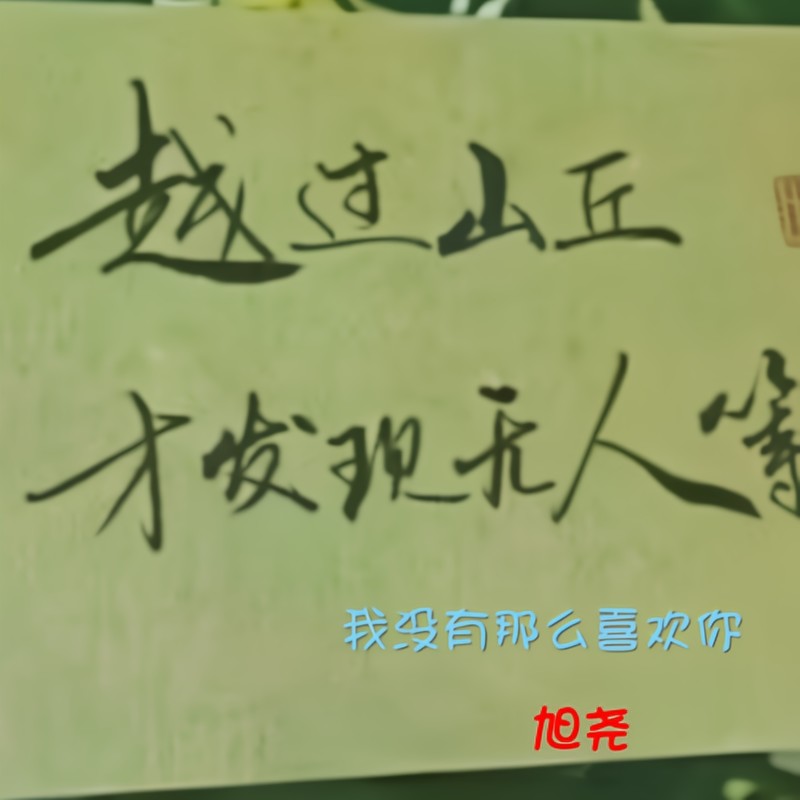 越过山丘
才发现无人等
我没有那么喜欢你
旭尧